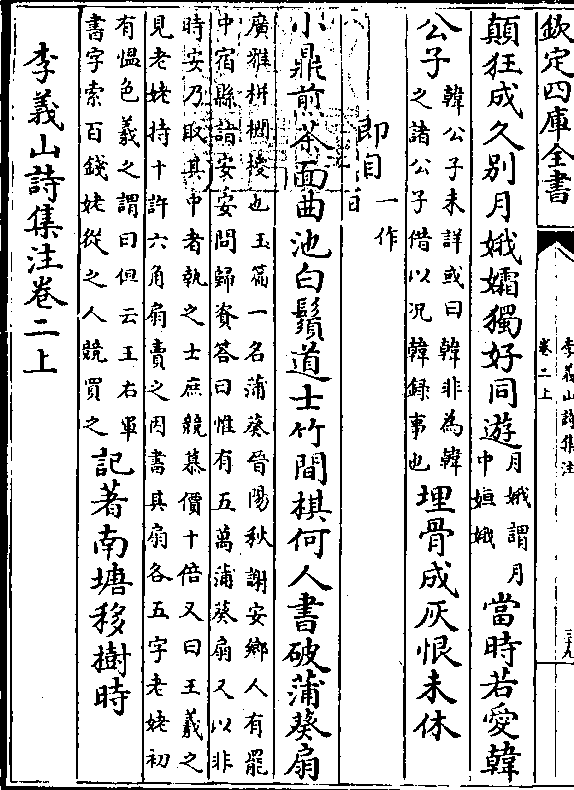 欽定四庫全書
李義山詩集注
卷二上
顛狂成久別月娥孀獨好同遊月娥謂月中姮娥當時若愛韓
公子韓公子未詳或曰韓非為韓之諸公子借以况韓錄事也埋骨成灰恨未休
即目一作日
小鼎煎茶面曲池白鬚道士竹間棋何人書破蒲葵扇
廣雅栟櫚椶也玉篇一名蒲葵晉陽秋謝安鄉人有罷
中宿縣詣安安問歸資答曰惟有五萬蒲葵扇又以非
時安乃取其中者執之士庶競慕價十倍又曰王羲之
見老姥持十許六角扇賣之因書其扇各五字老姥初
有愠色羲之謂曰但云王右軍
書字索百錢姥從之人競買之記著南塘移樹時
李義山詩集注卷二上